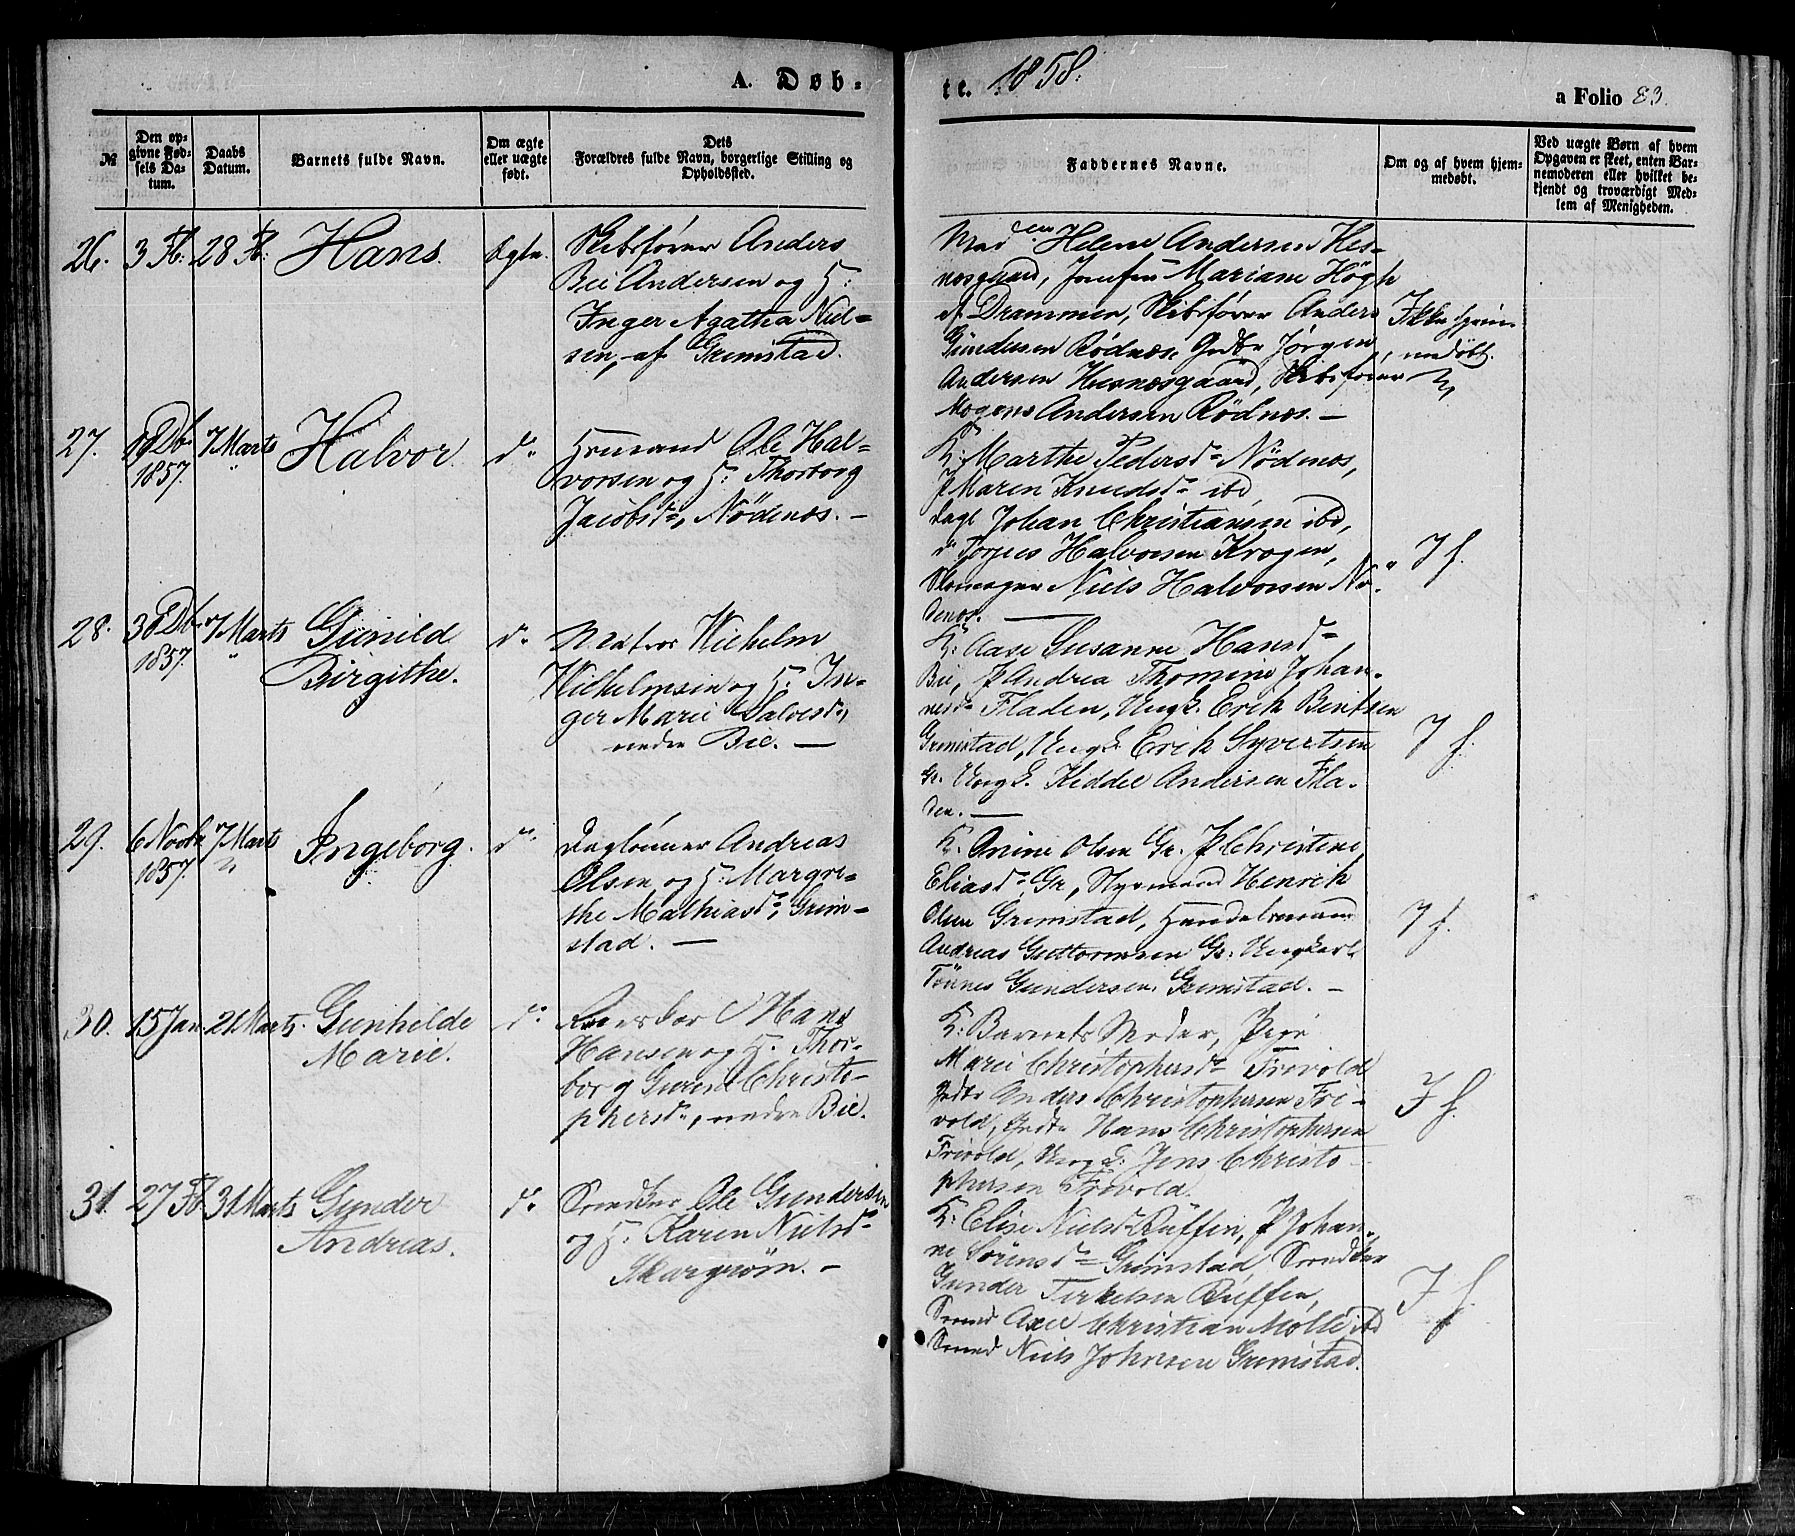 A. Døb-
te. 1858.
a Folio 83.
№
Den op-
givne Fød-
sels Da-
tum.
Daabs
Datum.
Barnets fulde Navn.
Om ægte
eller uægte
født.
Dets
Forældres fulde Navn, borgerlige Stilling og
Opholdssted.
Faddernes Navne.
Om og af hvem hjem-
medøbt.
Ved uægte Børn af hvem
Opgaven er skeet, enten Bar-
nemoderen eller hvilket be-
kjendt og troværdigt Med-
lem af Menigheden.
26. 3 Fb: 28 Fb: Hans. Ægte.
Skibsfører Anders
Bie Andersen og H:
Inger Agatha Niel-
sen, af Grimstad.
Mad Helene Andersen Hes-
nesgaard, Jomfru Mariane Högh
af Drammen, Skibsfører Anders
Gundersen Rödnes, Gdbr Jörgen
Andersen Hesnesgaard, Skibsfører
Mogens Andersen Rödnes. —
Ikke hjem-
medöbt.
27. 18 Db. 1857. 7 Marts Halvor. do
Huusmand Ole Hal-
vorsen og H: Thorborg
Jacobsd., Nödenes. —
K: Marthe Pedersd. Nödenes,
P Maren Knudsd. ibd,
Dagl Johan Christiansen ibd,
do Torjus Halvorsen Krogen,
Skomager Niels Halvorsen Nö-
denes. —
I f.
28. 30 Db. 1857. 7 Marts Gunild
Birgithe. do
Matros Wilhelm
Wilhelmsen og H: In-
ger Marie Salvesd.,
nedre Bie. —
K: Aase Susanne Hansd.
Bie, P Andrea Thomine Johan-
nesd. Fladen, Ungk. Erik Bentsen
Grimstad, Ungk. Erik Syvertsen
Gr. Ungk. Kiddel Andersen Fla-
den. —
I f.
29. 6 Novbr 1857. 7 Marts Ingeborg. do
Daglönner Andreas
Olsen og H: Margre-
the Mathiasd., Grim-
stad. —
K. Anine Olsen Gr. P Christine
Eliasd. Gr, Styrmand Henrik
Olsen Grimstad, Handelsmand
Andreas Guttormsen Gr. Ungkarl
Tönnes Gundersen, Grimstad. —
I f.
30. 15 Jan. 21 Marts. Gunhilde
Marie. do
Hans
Hansen og H. Thor-
borg Gurine Christo-
phersd., nedre Bie.
K: Barnets Moder, Pige
Marie Christophersd. Frivold
Gdbr Anders Christophersen Fri-
vold, Gdbr Hans Christophersen
Frivold, Ungk. Jens Christo-
phersen Frivold.
I f.
31. 27 Fb. 31 Marts Gunder
Andreas. do
Snedker Ole Gundersen
og H. Karen Nielsd.
Skargröm. —
K: Elise Nielsd. Rüffen, P Johan-
ne Sörensd. Grimstad, Snedker
Gunder Terkelsen Rüffen,
Smed Axel Christian Molle ibd
Smed Niels Johnsen Grimstad.
I f.